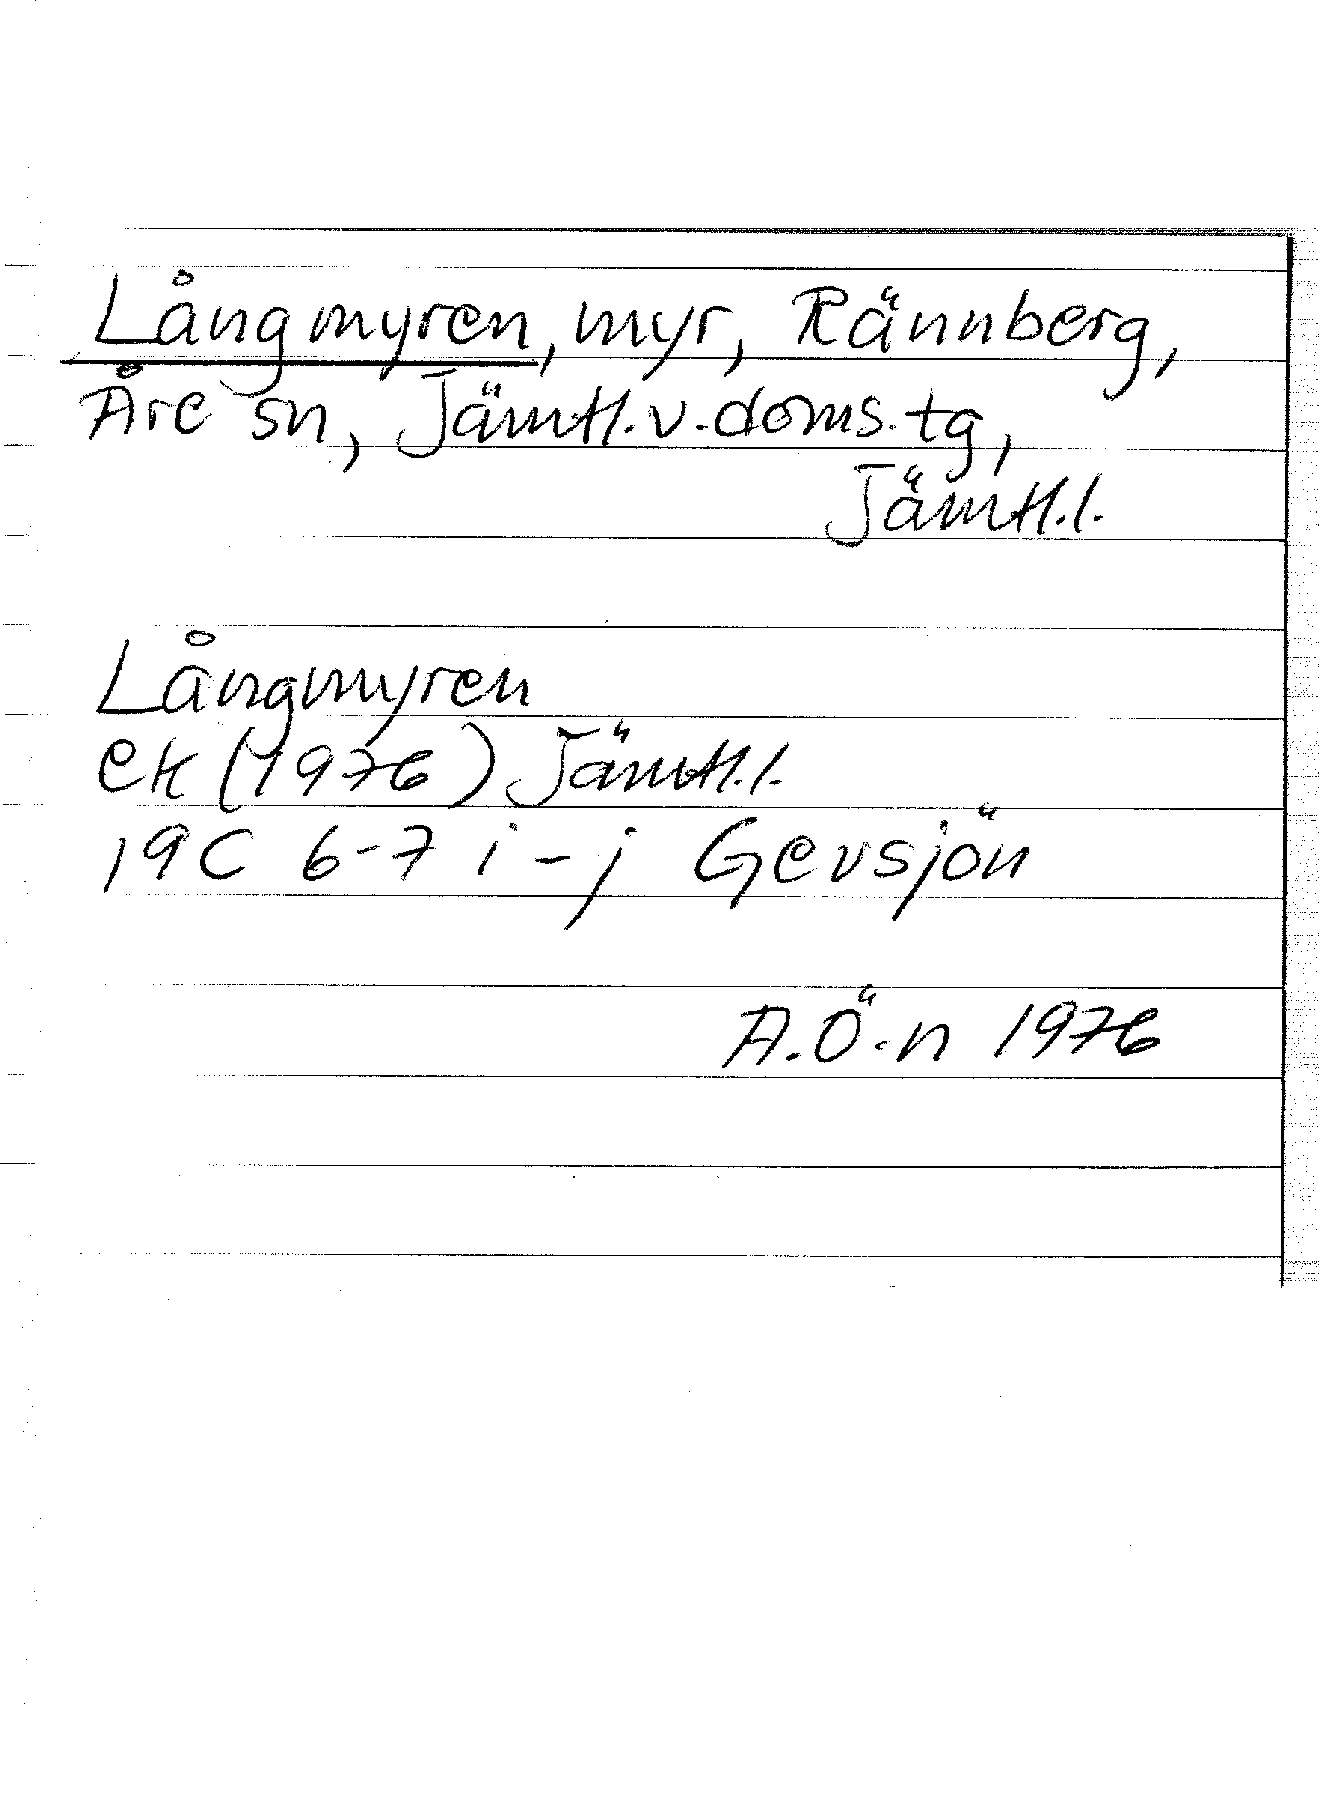 Långmyren, myr, Rännberg,
Åre sn, Jämtl.v.doms.tg,
Jämtl.l.
Långmyren
ek (1976) Jämtl.l.
19C 6-7 i-j Gevsjön
A.Ö-n 1976